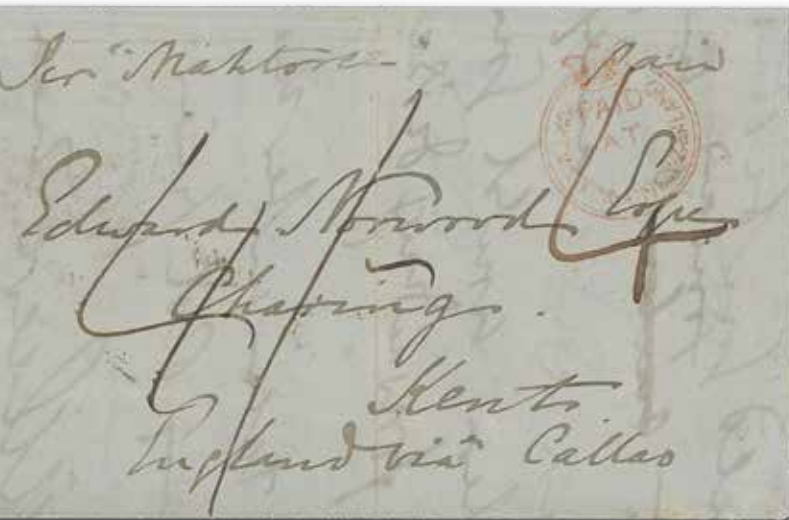 Per "Mahtoree" Paid
PAID
AT
Edward Norwood Esqre
4/-
4
Charing.
Kent
England via Callao